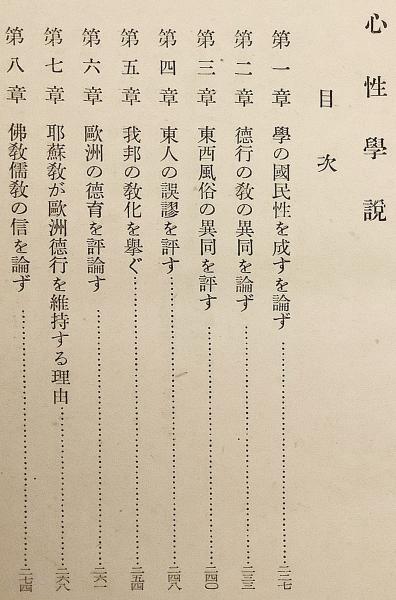 心性學說
目次
第一章 學の國民性を成すを論ず……二二七
第二章 德行の敎の異同を論ず……二三三
第三章 東西風俗の異同を評す……二四〇
第四章 東人の誤謬を評す……二四八
第五章 我邦の敎化を擧ぐ……二五四
第六章 歐洲の德育を評論す……二六一
第七章 耶蘇敎が歐洲德行を維持する理由……二六八
第八章 佛敎儒敎の信を論ず……二七四